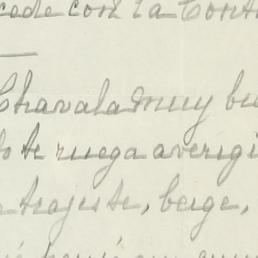 cede con la Cont
Chavala muy bu
to te ruega averigü
trajiste, beige,